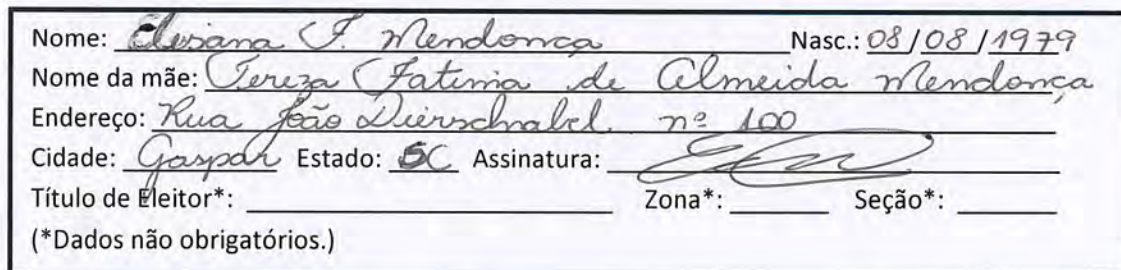 Nome: Elisana F. Mendonça Nasc.: 08/08/1979
Nome da mãe: Tereza Fatima de Almeida Mendonça
Endereço: Rua João nº 100
Cidade: Gaspar Estado: SC Assinatura:
Título de Eleitor*: Zona*: Seção*:
(*Dados não obrigatórios.)